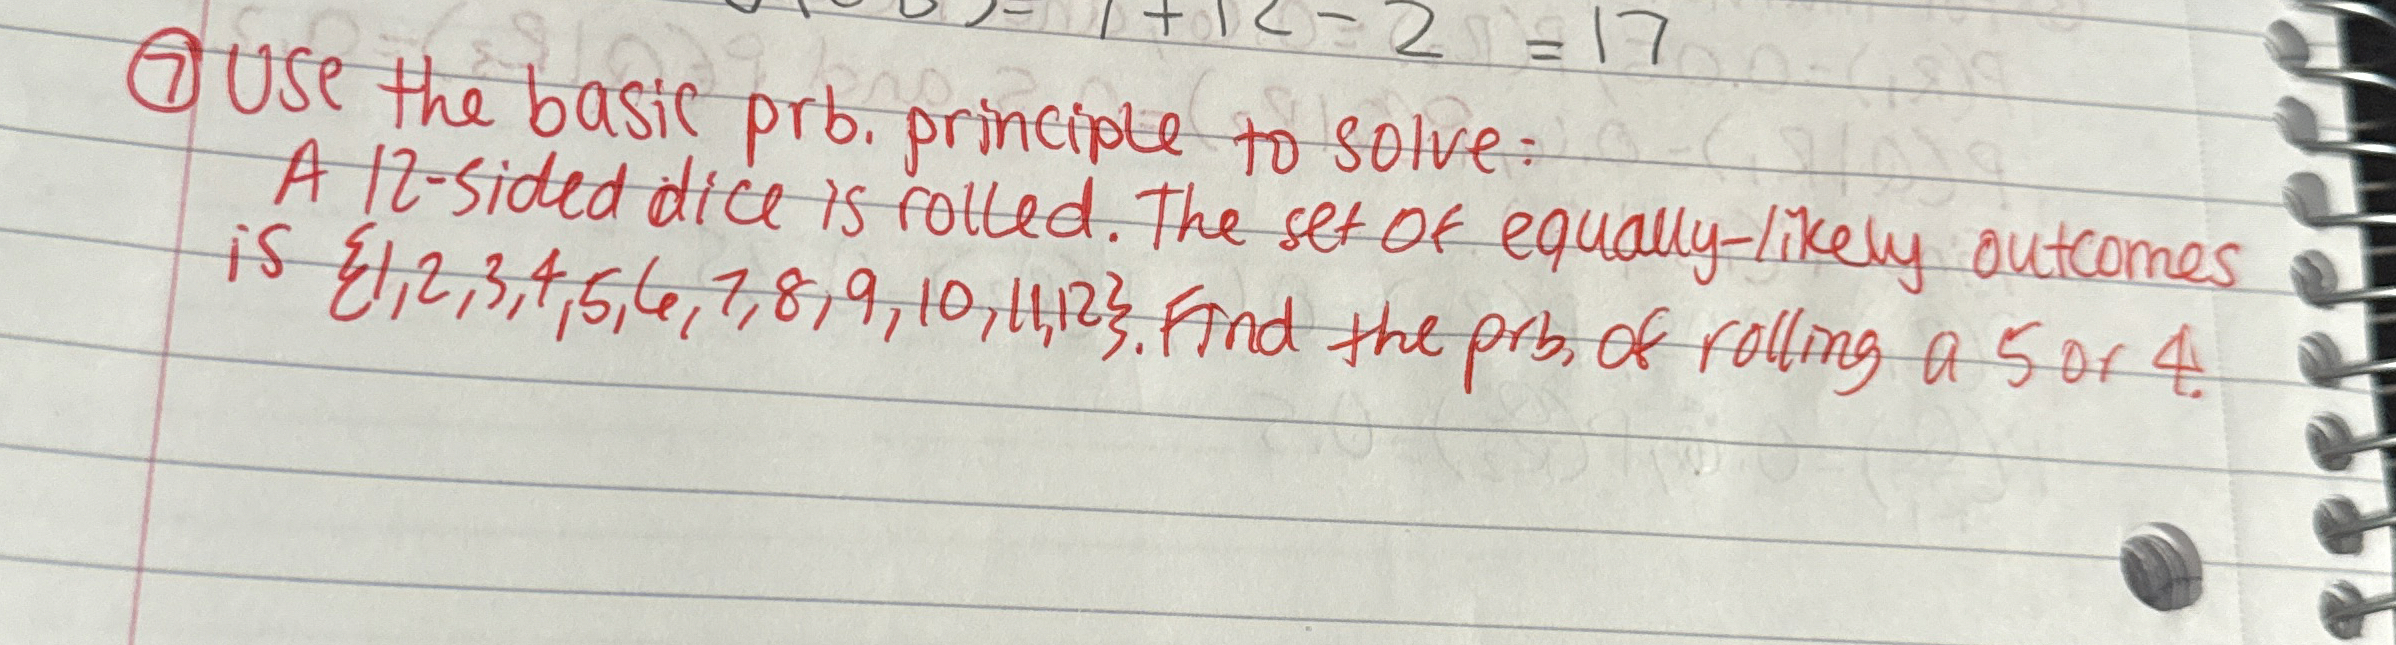 = 7 + 12 - 2 = 17
⑦ Use the basic prb. principle to solve:
A 12-sided dice is rolled. The set of equally-likely outcomes
is {1,2,3,4,5,6,7,8,9,10,11,12}. Find the prb. of rolling a 5 or 4.